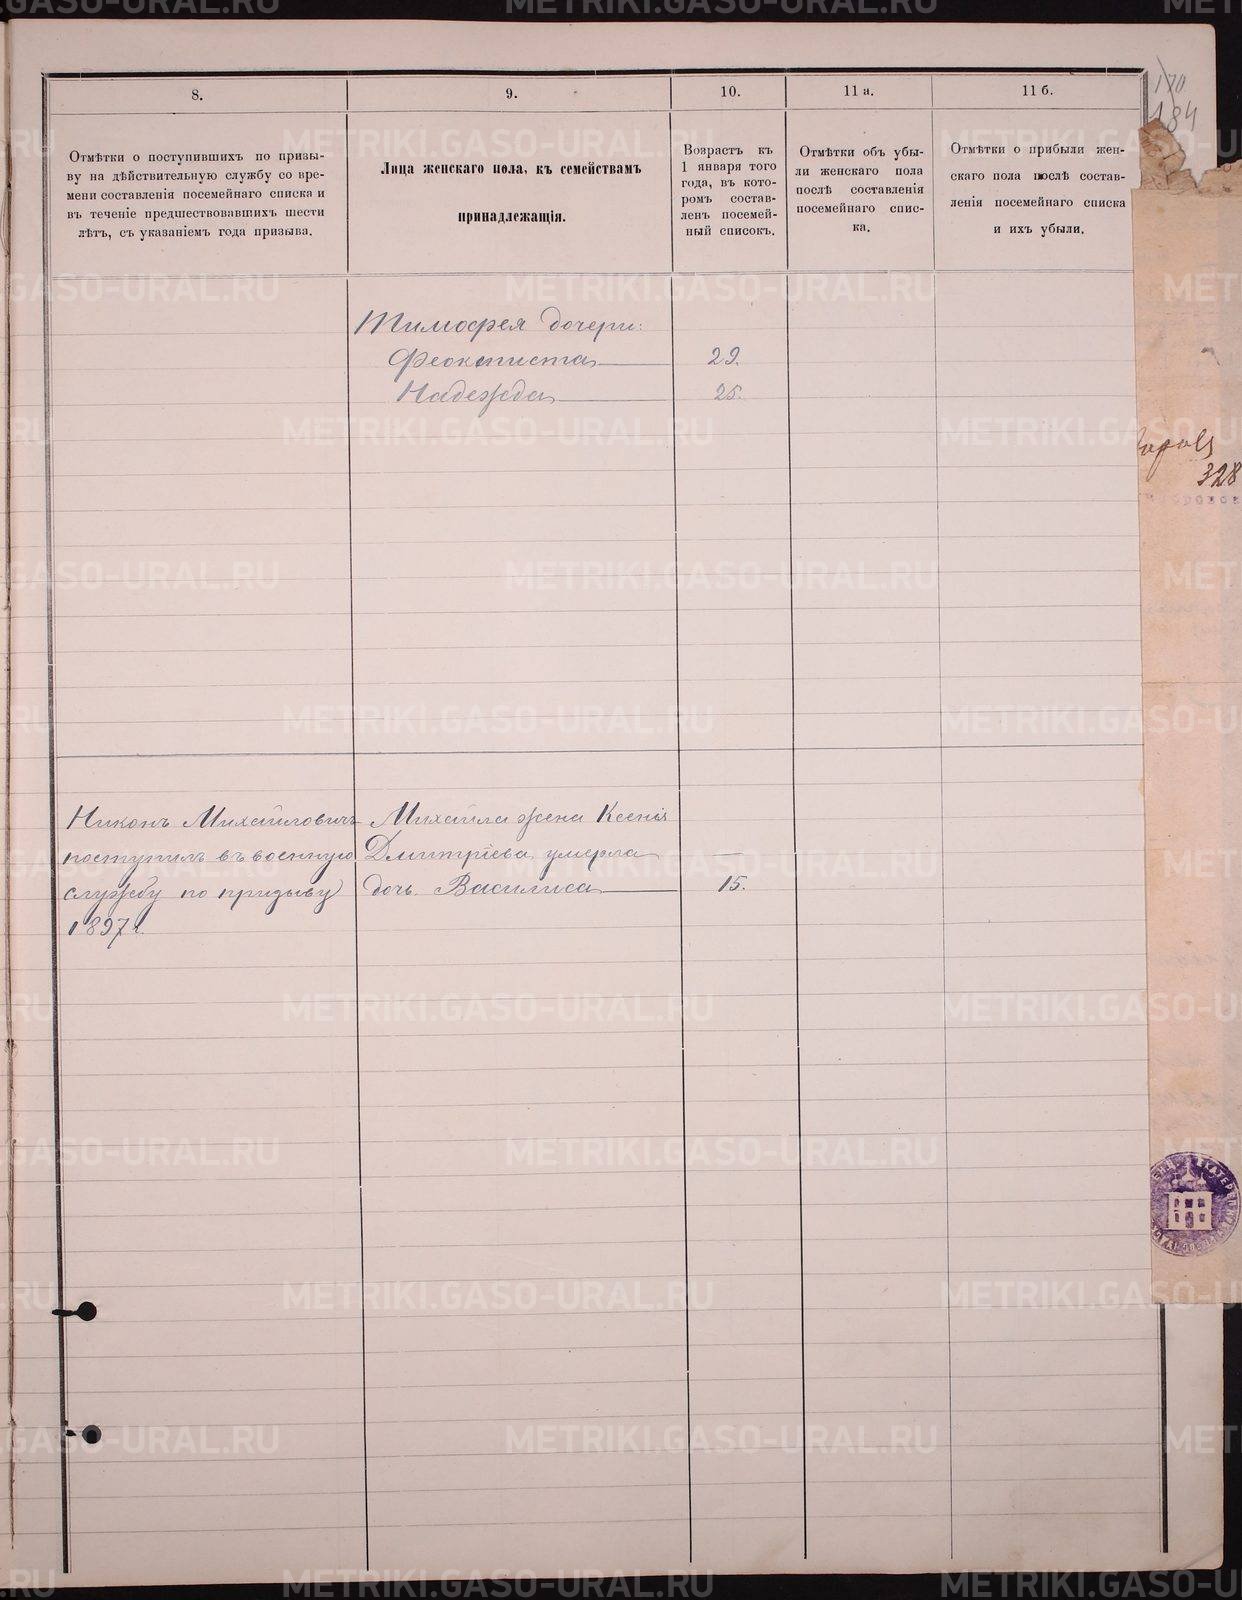 170
184
8.
9.
10.
11 а.
11 б.
Отмѣтки о поступившихъ по призы-
ву на дѣйствительную службу со вре-
мени составленія посемейнаго списка и
въ теченіе предшествовавшихъ шести
лѣтъ, съ указаніемъ года призыва.
Лица женскаго пола, къ семействамъ
принадлежащія.
Возрастъ къ
1 января того
года, въ кото-
ромъ состав-
ленъ посемей-
ный списокъ.
Отмѣтки объ убы-
ли женскаго пола
послѣ составленія
посемейнаго спис-
ка.
Отмѣтки о прибыли жен-
скаго пола послѣ состав-
ленія посемейнаго списка
и ихъ убыли.
Тимофея дочери:
Феоктиста 29.
Надежда 25.
328
Никонъ Михайловичъ
поступилъ въ военную
службу по призыву
1897 г.
Михаила жена Ксенія
Дмитріева, умерла —
дочь Василиса 15.
METRIKI.GASO-URAL.RU